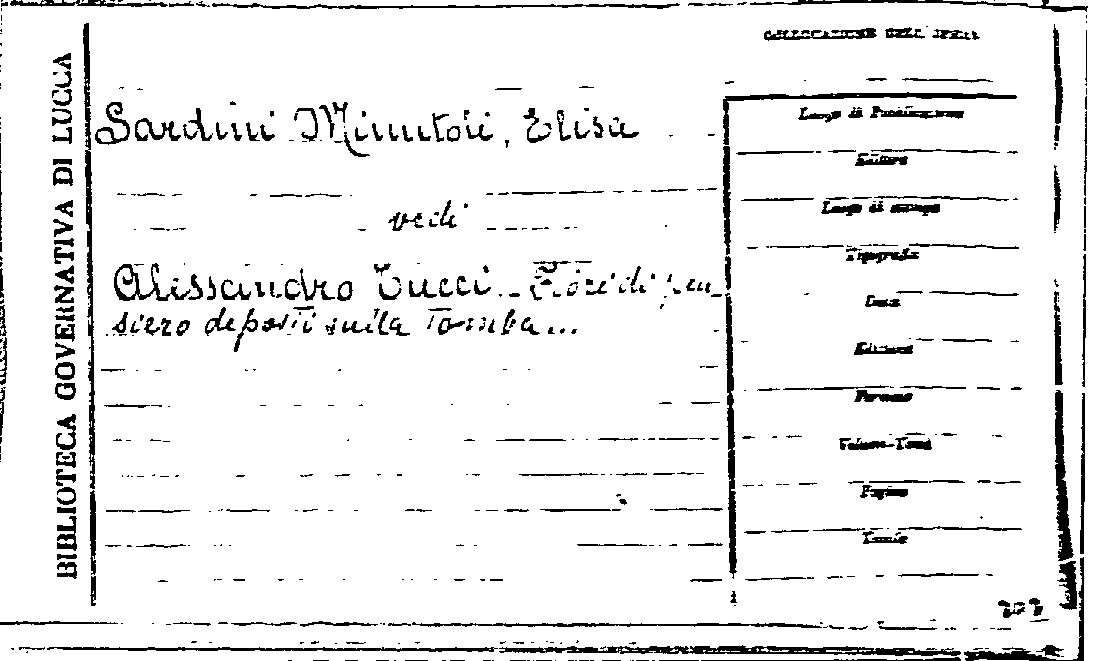 BIBLIOTECA GOVERNATIVA DI LUCCA
Sardini Minutoli, Elisa
vedi
Alessandro Tucci. Fiori di pen
siero deposti sulla Tomba...
COLLOCAZIONE DELL'OPERA
Luogo di Pubblicazione
Editore
Luogo di stampa
Tipografia
Data
Edizione
Formato
Volume-Tomi
Pagine
Tavole